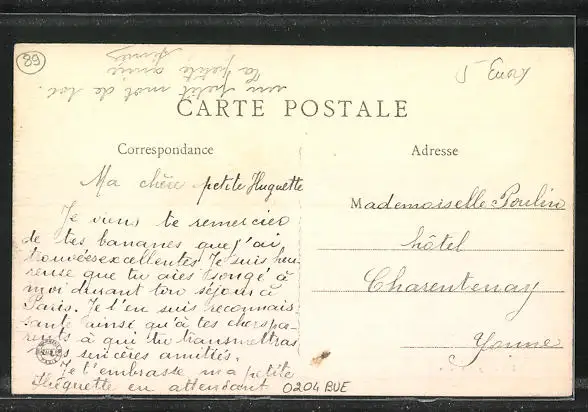 89
5 Envoy
CARTE POSTALE
Correspondance
Adresse
Ma chère petite Huguette
Je viens te remercier
de tes bananes que j'ai
trouvées excellentes. Je suis heu-
reuse que tu aies songé à
moi durant ton séjour à
Paris. Je t'en suis reconnais-
sante ainsi qu'à tes chers pa-
rents à qui tu transmettras
mes sincères amitiés.
Je t'embrasse ma petite
Huguette en attendant
un petit mot de toi.
Ta petite amie
Mademoiselle Poulin
hôtel
Charentenay
Yonne
0204 BUE